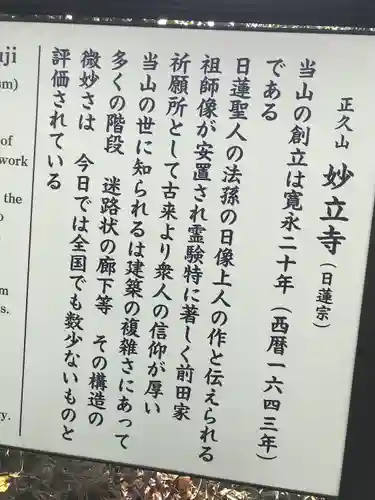 正久山 妙立寺（日蓮宗）
当山の創立は寛永二十年（西暦一六四三年）
である
日蓮聖人の法孫の日像上人の作と伝えられる
祖師像が安置され霊験特に著しく前田家
祈願所として古来より衆人の信仰が厚い
当山の世に知られるは建築の複雑さにあって
多くの階段 迷路状の廊下等 その構造の
微妙さは 今日では全国でも数少ないものと
評価されている
uji
sm)
of
work
the
o
m
s.
ry.